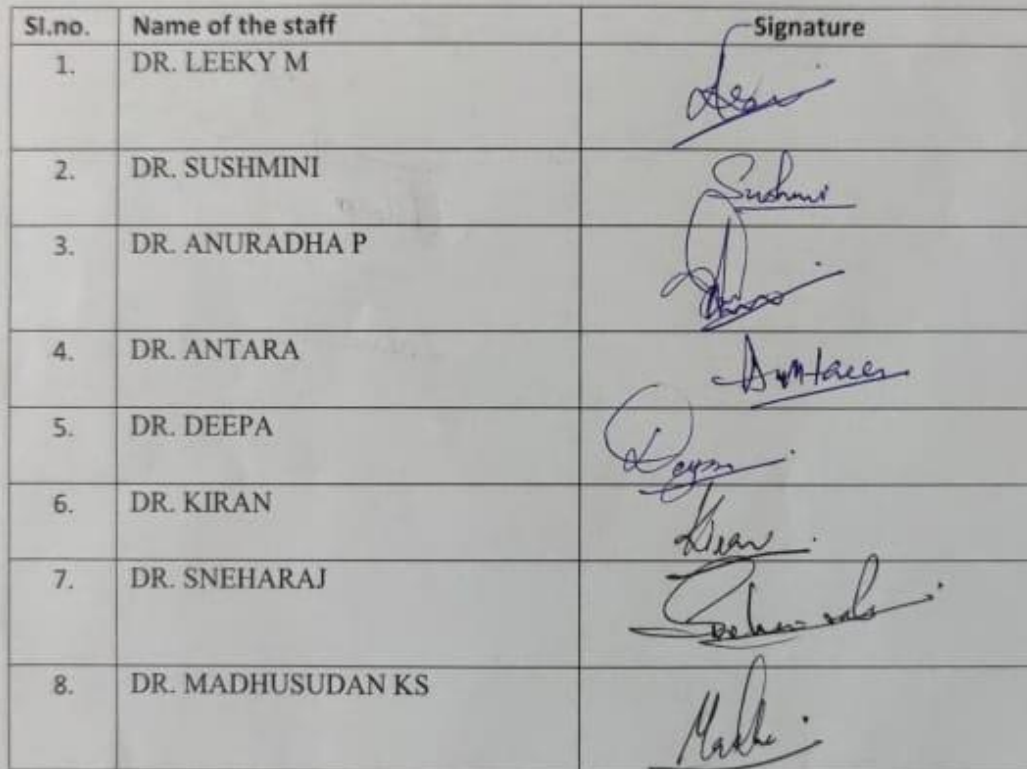 Sl.no. Name of the staff Signature
1. DR. LEEKY M
2. DR. SUSHMINI Sushmi
3. DR. ANURADHA P
4. DR. ANTARA
5. DR. DEEPA
6. DR. KIRAN Kiran
7. DR. SNEHARAJ
8. DR. MADHUSUDAN KS Madhu